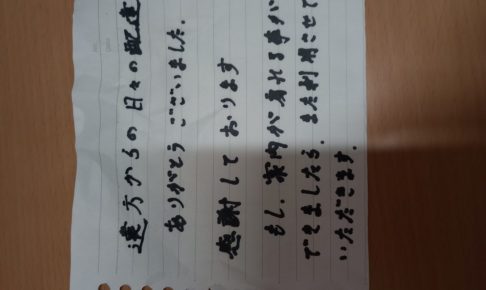 遠方からの日々の配達
ありがとうございました。
感謝しております
もし、が れる事が
できましたら、また利用させて
いただきます。